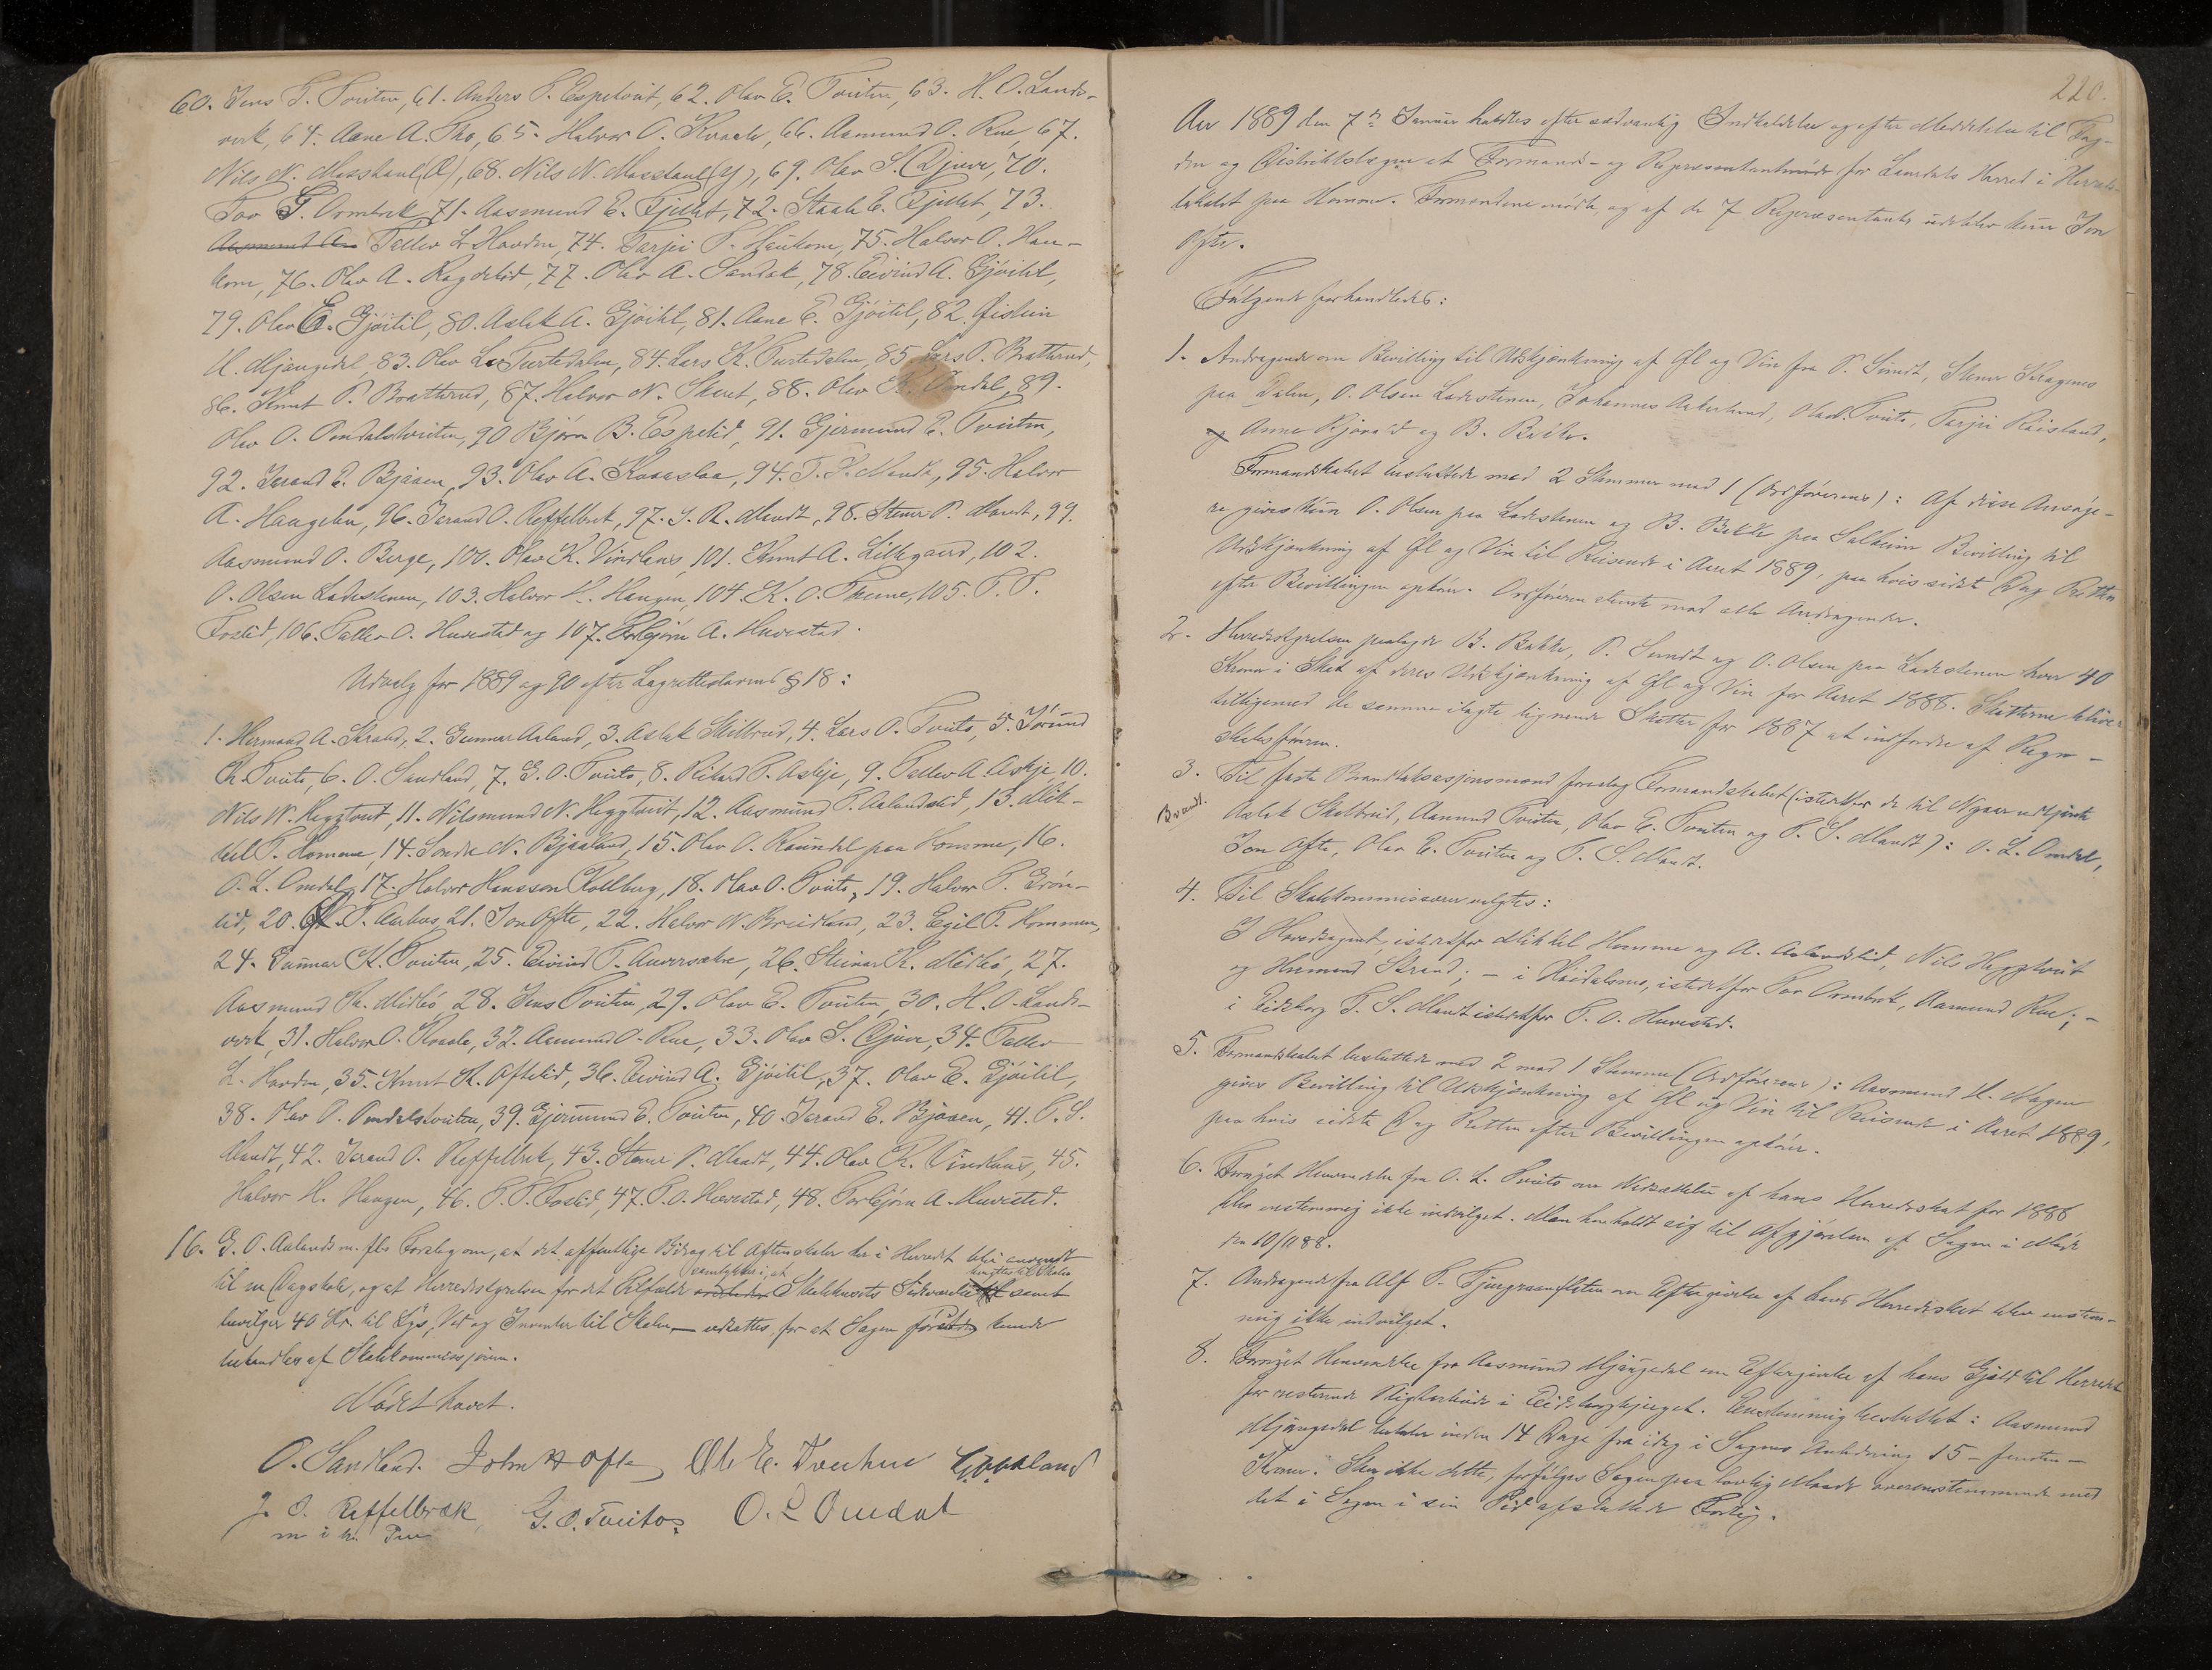 60. Jens T. Tveiten, 61. Anders T. Espetveit, 62. Olav E. Tveiten, 63. H. O. Lands-
verk, 64. Aane A. Tho, 65. Halvor O. Kvaale, 66. Aamund O. Rue, 67.
Nils N. Mosstaul (Æ), 68. Nils N. Mosstaul (y), 69. Olav S. Djuve, 70.
Tov G. Ormbrek, 71. Aasmund E. Fjellet, 72. Staale E. Fjellet, 73.
Tallev L. Hovden, 74. Tarjei T. Haukom, 75. Halvor O. Hau-
kom, 76. Olav A. Ragdelid, 77. Olav A. Sandok, 78. Eivind A. Gjøitil,
79. Olav E. Gjøitil, 80. Aslak A. Gjøitil, 81. Aane E. Gjøitil, 82. Øistein
U. Mjaugedal, 83. Olav L. Turtedalen, 84. Lars K. Turtedalen, 85. Lars P. Bratterud,
86. Knut P. Bratterud, 87. Halvor N. Skeut, 88. Olav K. Omdal, 89.
Olav O. Omdalstveiten, 90 Bjørn B. Espelid, 91. Gjermund E. Tveiten,
92. Jorand E. Bjåaen, 93. Olav A. Kovaslaa, 94. T. S. Mandt, 95. Halvor
A. Haugelun, 96. Jorand O. Reffelbrek, 97. S. R. Mandt, 98. Steinar P. Mandt, 99.
Aasmund O. Berge, 100. Olav K. Vindlaus, 101. Knut A. Lillegaard, 102.
O. Olsen Ladestenen, 103. Halvor H. Haugen, 104. K. O. Theine, 105. T. T.
Foslid, 106. Tallev O. Huvestad og 107. Torbjørn A. Huvestad.
Udvalg for 1889 og 90 efter Lagrettelovens § 18:
1. Hermand A. Strand, 2. Gunnar Aaland, 3. Aslak Skilbred, 4. Lars O. Tveito, 5. Jørund
K. Tveito, 6. O. Sandland, 7. G. O. Tveito, 8. Rikard T. Askje, 9. Tallev A. Askje, 10.
Nils N. Heggtveit, 11. Nilsmund N. Heggtveit, 12. Aasmund T. Aalandslid, 13. Mik-
kel T. Homme, 14. Sondre N. Bjaaland, 15. Olav O. Raundal paa Homme, 16.
O. L. Omdal, 17. Halvor Hansson Kollberg, 18. Olav O. Tveito, 19. Halvor T. Grøn-
lid, 20. T. Aarhus, 21. Jon Ofte, 22. Halvor N. Breidland, 23. Egil T. Hommen,
24. Gunnar K. Tveiten, 25. Eivind T. Auversakre, 26. Steinar K. Midbø, 27.
Aasmund K. Midbø, 28. Jens Tveiten, 29. Olav E. Tveiten, 30. H. O. Lands-
verk, 31. Halvor O. Kvaale, 32. Aamund O. Rue, 33. Olav S. Djuve, 34. Tallev
L. Hovden, 35. Knut K. Oftelid, 36. Eivind A. Gjøitil, 37. Olav E. Gjøitil,
38. Olav O. Omdalstveiten, 39. Gjermund E. Tveiten, 40. Jorand E. Bjåaen, 41. T. S.
Mandt, 42. Jorand O. Reffelbrek, 43. Steinar P. Mandt, 44. Olav K. Vindlaus, 45.
Halvor H. Haugen, 46. T. T. Foslid, 47. T. O. Huvestad, 48. Torbjørn A. Huvestad.
16. G. O. Aalands m. fls Forslag om, at det offentlige Bidrag til Aftenskoler her i Herredet blir anvendt
samtykker i, at knyttes til Skolen
til en Dagskole, og at Herredsstyrelsen for det Tilfælde Skolehusets samt
bevilger 40 Kr. til Lys, Ved og Inventar til Skolen — udsattes, for at Sagen kunde
behandles af Skolekommissjonen.
Mødet hævet.
O. Sandland. John H Ofte Ole E. Tveiten G. O. Aaland
J. O. Reffelbræk G. O. Tveito. O. L. Omdal
m i h. Pen
220.
Aar 1889 den 7de Januar holdtes efter sædvanlig Indkaldelse og efter Meddelelse til Fog-
den og Distriktslægen et Formands- og Repræsentantmøde for Laurdals Herred i Herreds-
lokalet paa Homme. Formændene mødte og af de 7 Repræsentanter udeblev kun Jon
Ofte.
Følgende forhandledes:
1. Andragende om Bevilling til Udskjænkning af Øl og Vin fra P. Sundt, Steinar Kragenes
paa Dalen, O. Olsen Ladestenen, Johannes Aakerlund, Olav Tveito, Tarjei Råisland,
og Anne Bjåra'd og B. Bakke.
Formandskabet besluttede med 2 Stemmer mod 1 (Ordførerens): Af disse Ansøge-
re gives kun O. Olsen paa Ladestenen og B. Bakke paa Solheim Bevilling til
Udskjænkning af Øl og Vin til Reisende i Aaret 1889, paa hvis sidste Dag Retten
efter Bevillingen ophører. Ordføreren stemte mod alle Andragender.
2. Herredsstyrelsen paalagde B. Bakke, P. Sundt og O. Olsen paa Ladestenen hver 40
Kroner i Skat af deres Udskjænkning af Øl og Vin for Aaret 1888. Skatterne bliver
tilligemed de samme ilagte lignende Skatter for 1887 at indfordre af Regn-
skabsføreren.
3. Til faste Brandtaksasjonsmænd foreslog Formandskabet (istedetfor de til Nyaar udtjente
Brandt.
Aslak Skilbred, Aamund Tveiten, Olav E. Tveiten og T. S. Mandt): O. L. Omdal,
Jon Ofte, Olav E. Tveiten og T. S. Mandt.
4. Til Skolekommissærer valgtes:
I Hovedsognet, istedetfor Mikkel Homme og A. Aalandslid, Nils Heggtveit
og Hermand Strand; — i Høidalsmo, istedetfor Tov Ormbrek, Aamund Rue; —
i Eidsborg T. S. Mandt istedetfor T. O. Huvestad.
5. Formandskabet besluttede med 2 mod 1 Stemme (Ordførerens): Aasmund H. Hagen
gives Bevilling til Udskjænkning af Øl og Vin til Reisende i Aaret 1889,
paa hvis sidste Dag Retten efter Bevillingen ophører.
6. Fornyet Henvendelse fra O. L. Tveito om Nedsættelse af hans Herredsskat for 1888
blev enstemmig ikke indvilget. Man henholdt sig til Afgjørelsen af Sagen i Møde
den 10/11 88.
7. Andragende fra Alf T. Fjurgraanflaten om Eftergivelse af hans Herredsskat blev enstem-
mig ikke indvilget.
8. Fornyet Henvendelse fra Aasmund Mjaugedal om Eftergivelse af hans Gjæld til Herredet
for resterende Pligtarbeide i Eidsborgbjerget. Enstemmig besluttet: Aasmund
Mjaugedal betaler inden 14 Dage fra idag i Sagens Anledning 15 – femten –
Kroner. Sker ikke dette, forfølges Sagen paa lovlig Maade overensstemmende med
det i Sagen i sin Tid afsluttede Forlig.